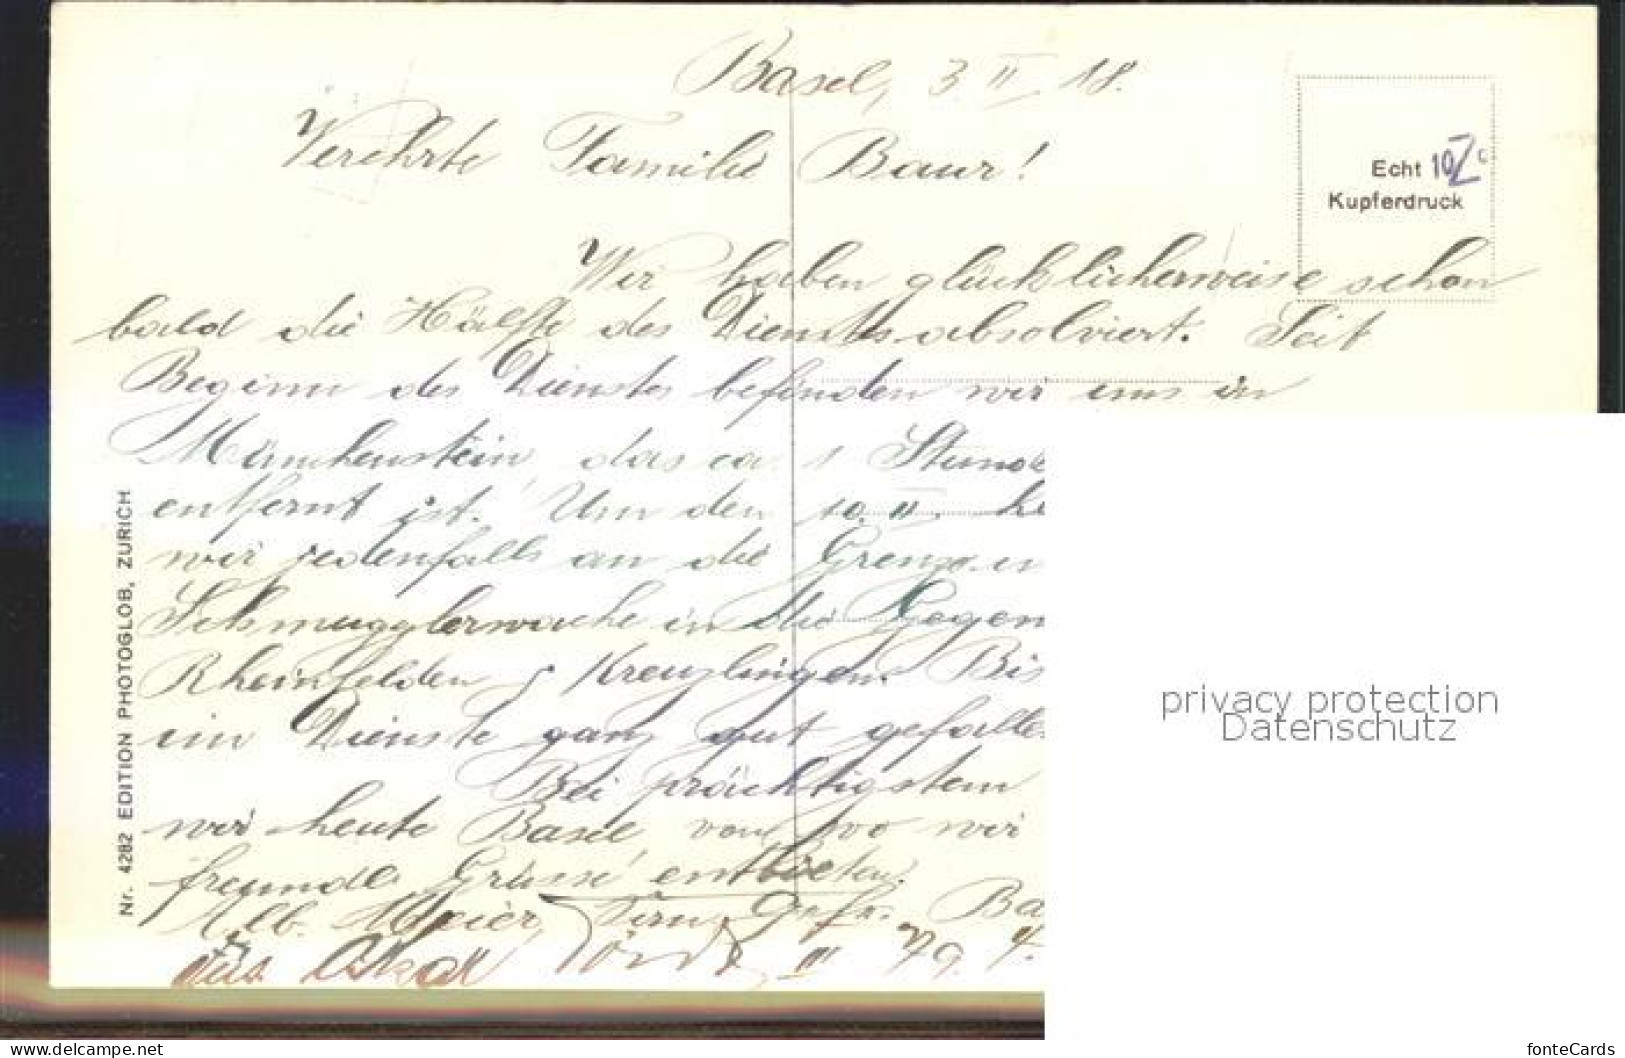 Basel, 3. II. 18.
Verehrte Familie Baur!
Echt 10
Kupferdruck
Wir haben glücklicherweise schon
bald die Hälfte des Dienstes absolviert. Seit
Beginn des Dienstes befinden wir uns in
Münchenstein, das ca. 1 Stund
entfernt ist. Um den 10. II.
wir jedenfalls an die Grenze
Schmugglerwache in die Gegen
Rheinfelden Kreuzlingen. Bis
im Dienste ganz gut gefalle
Bei prächtigstem
wir heute Basel von wo wir
freundl. Grüsse entbieten.
Alb. Meier, Gefr. Ba
Oskar III 79
Nr. 4282 EDITION PHOTOGLOB, ZURICH
privacy protection
Datenschutz
www.delcampe.net
fonteCards